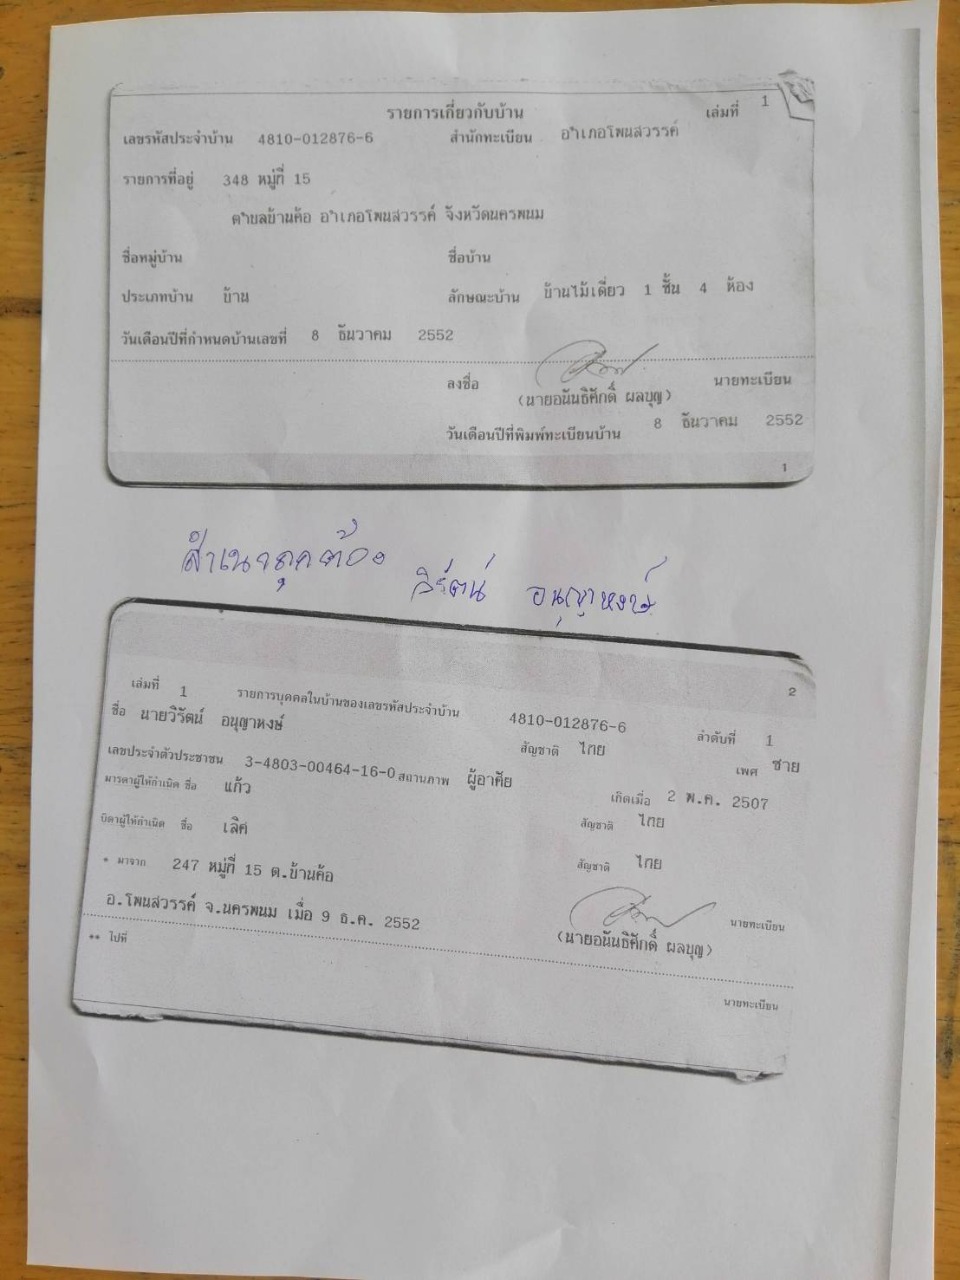 รายการเกี่ยวกับบ้าน เล่มที่ 1
เลขรหัสประจำบ้าน 4810-012876-6 สำนักทะเบียน อำเภอโพนสวรรค์
รายการที่อยู่ 348 หมู่ที่ 15
ตำบลบ้านค้อ อำเภอโพนสวรรค์ จังหวัดนครพนม
ชื่อหมู่บ้าน ชื่อบ้าน
ประเภทบ้าน บ้าน ลักษณะบ้าน บ้านไม้เดี่ยว 1 ชั้น 4 ห้อง
วันเดือนปีที่กำหนดบ้านเลขที่ 8 ธันวาคม 2552
ลงชื่อ นายทะเบียน
(นายอนันธิศักดิ์ ผลบุญ)
วันเดือนปีที่พิมพ์ทะเบียนบ้าน 8 ธันวาคม 2552
1
สำเนาถูกต้อง
วิรัตน์ อนุญาหงษ์
2
เล่มที่ 1 รายการบุคคลในบ้านของเลขรหัสประจำบ้าน 4810-012876-6 ลำดับที่ 1
ชื่อ นายวิรัตน์ อนุญาหงษ์ สัญชาติ ไทย เพศ ชาย
เลขประจำตัวประชาชน 3-4803-00464-16-0 สถานภาพ ผู้อาศัย เกิดเมื่อ 2 พ.ค. 2507
มารดาผู้ให้กำเนิด ชื่อ แก้ว สัญชาติ ไทย
บิดาผู้ให้กำเนิด ชื่อ เลิศ สัญชาติ ไทย
* มาจาก 247 หมู่ที่ 15 ต.บ้านค้อ
อ.โพนสวรรค์ จ.นครพนม เมื่อ 9 ธ.ค. 2552 นายทะเบียน
(นายอนันธิศักดิ์ ผลบุญ)
** ไปที่
นายทะเบียน